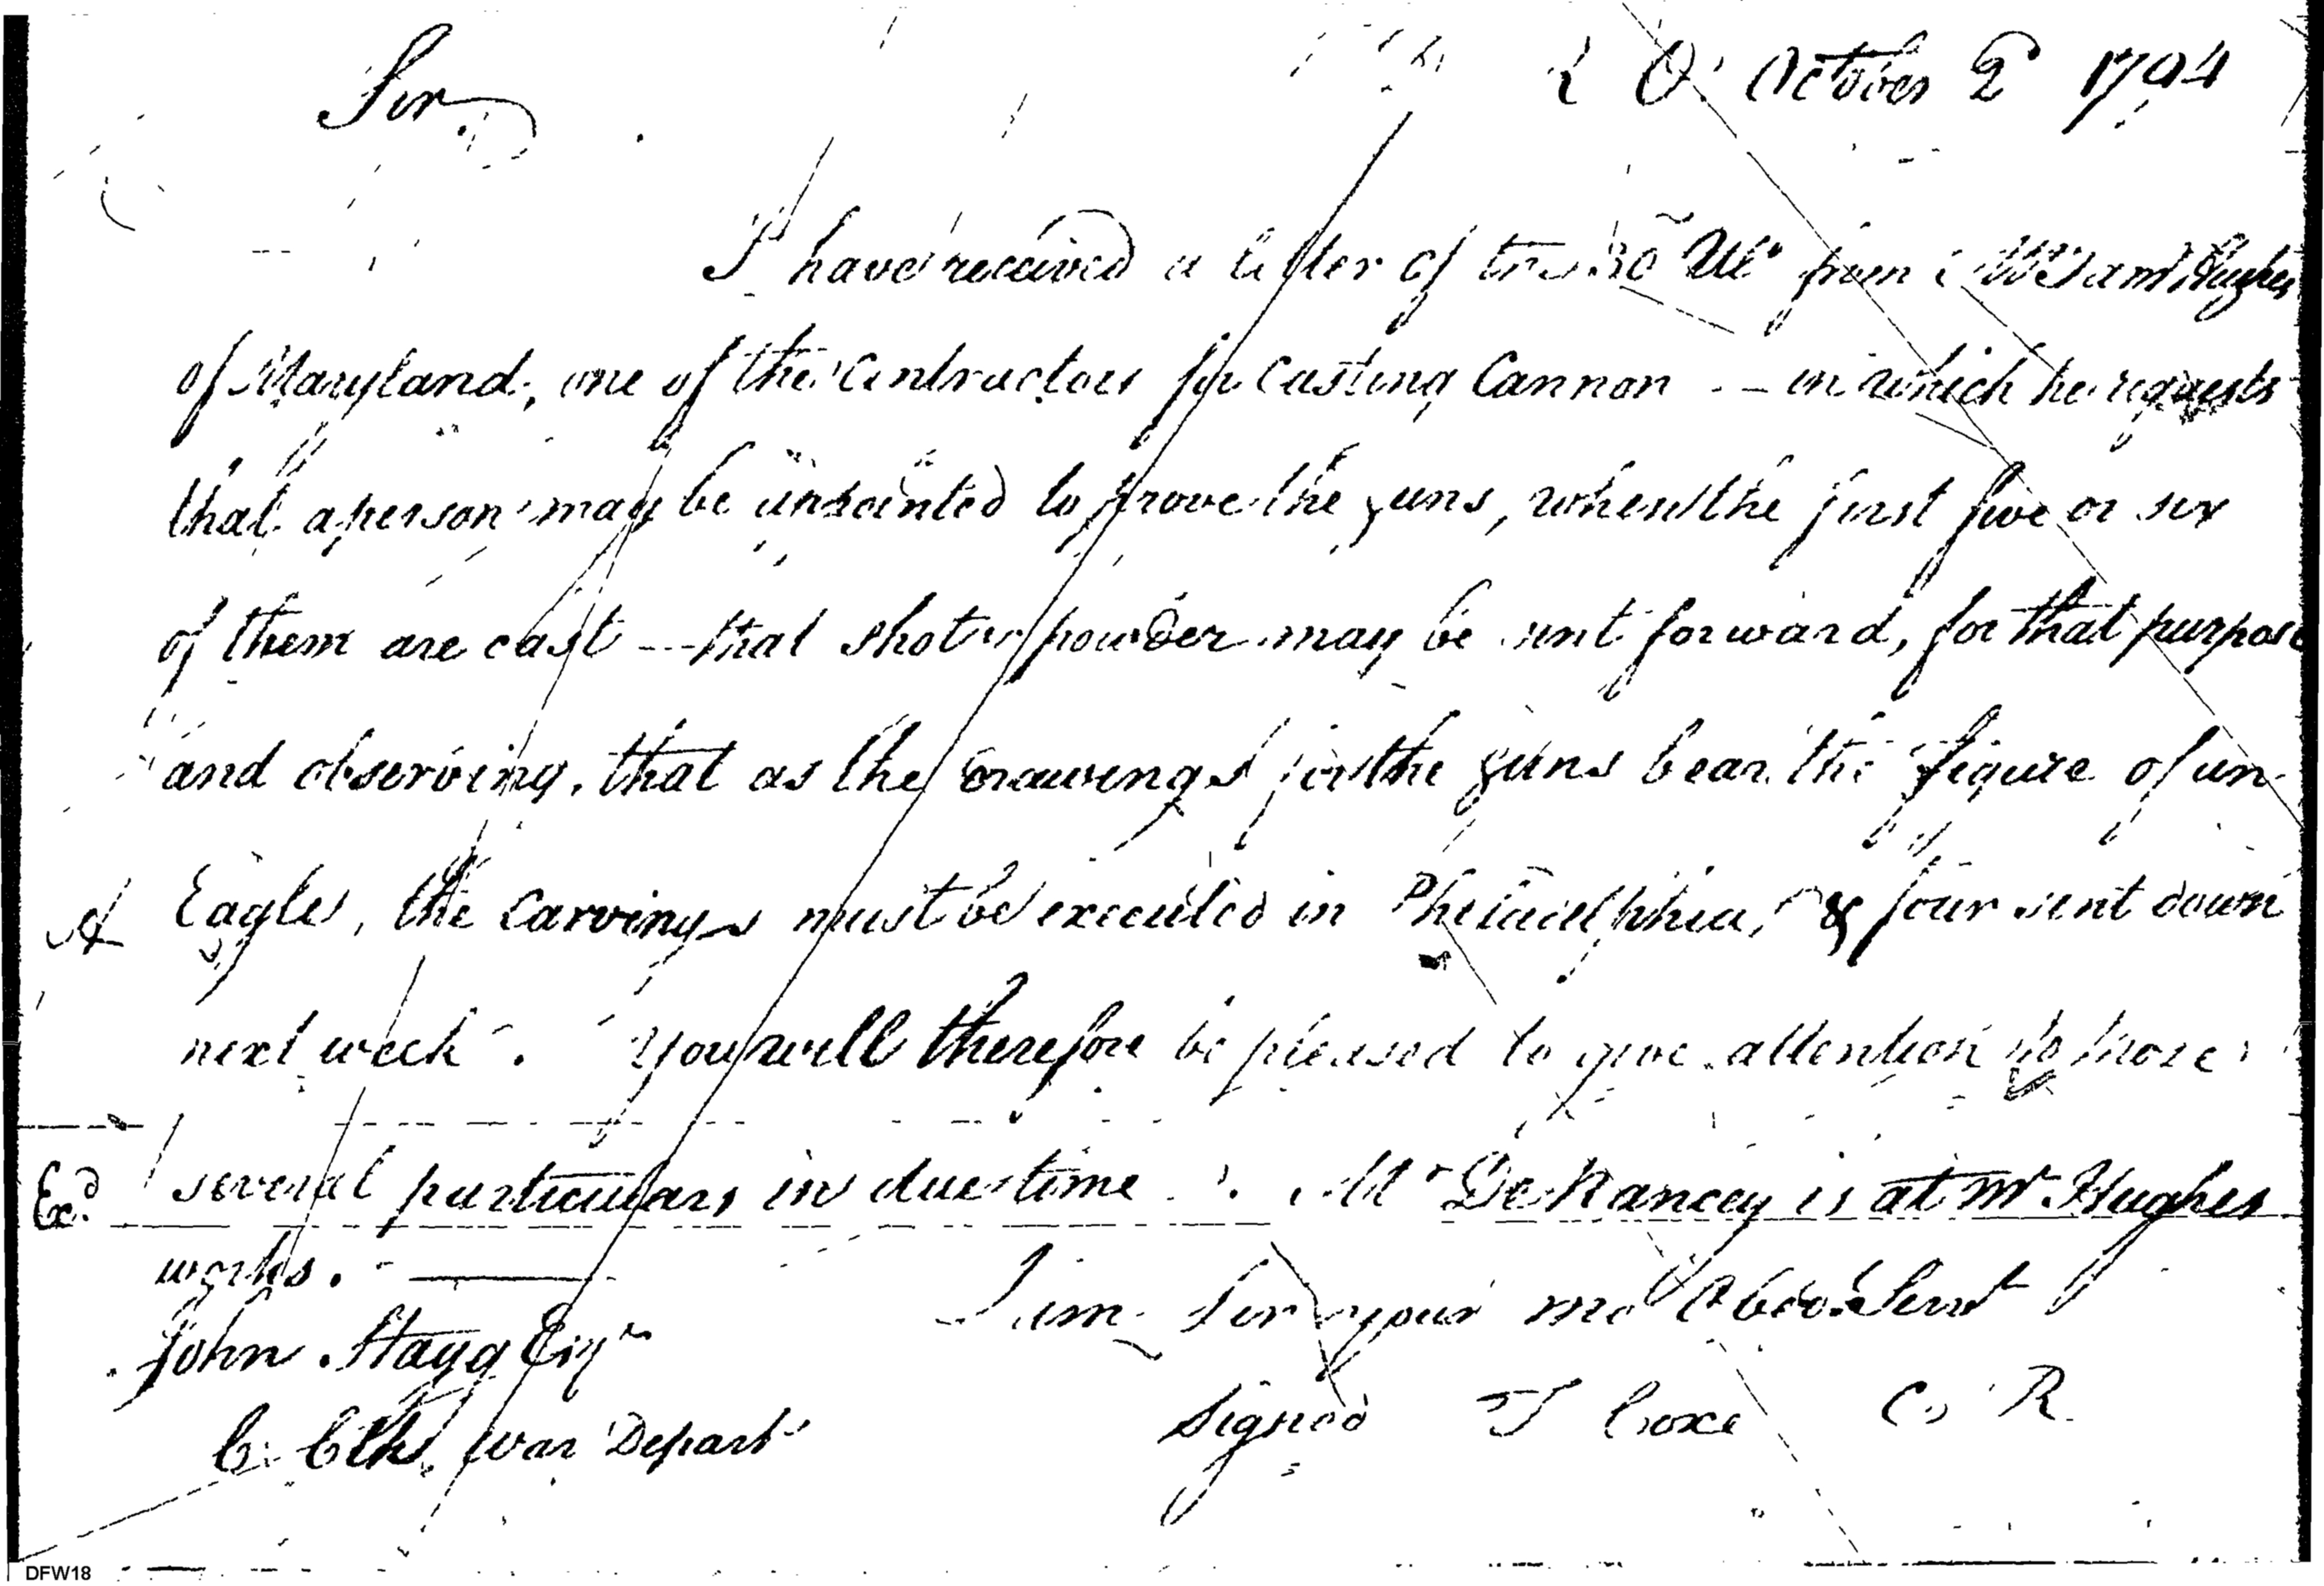 Sir, October 2d 1794
I have received a letter of the 30th Ulto from Mr Saml Hughes
of Maryland, one of the Contractors for Casting Cannon -- in which he requests
that a person may be appointed to prove the guns, when the first five or six
of them are cast -- that shot & powder may be sent forward, for that purpose
and observing, that as the drawings for the guns bear the figure of an
Eagles, the Carvings must be executed in Philadelphia, & four sent down
next week. You will therefore be pleased to give attention to those
Exd several particulars in due time. Mr De Rancey is at Mr Hughes
works.
I am Sir your mo Obedt Servt
John Stagg Esqr
signed T Coxe C. R.
C. Clk. War Depart
DFW18